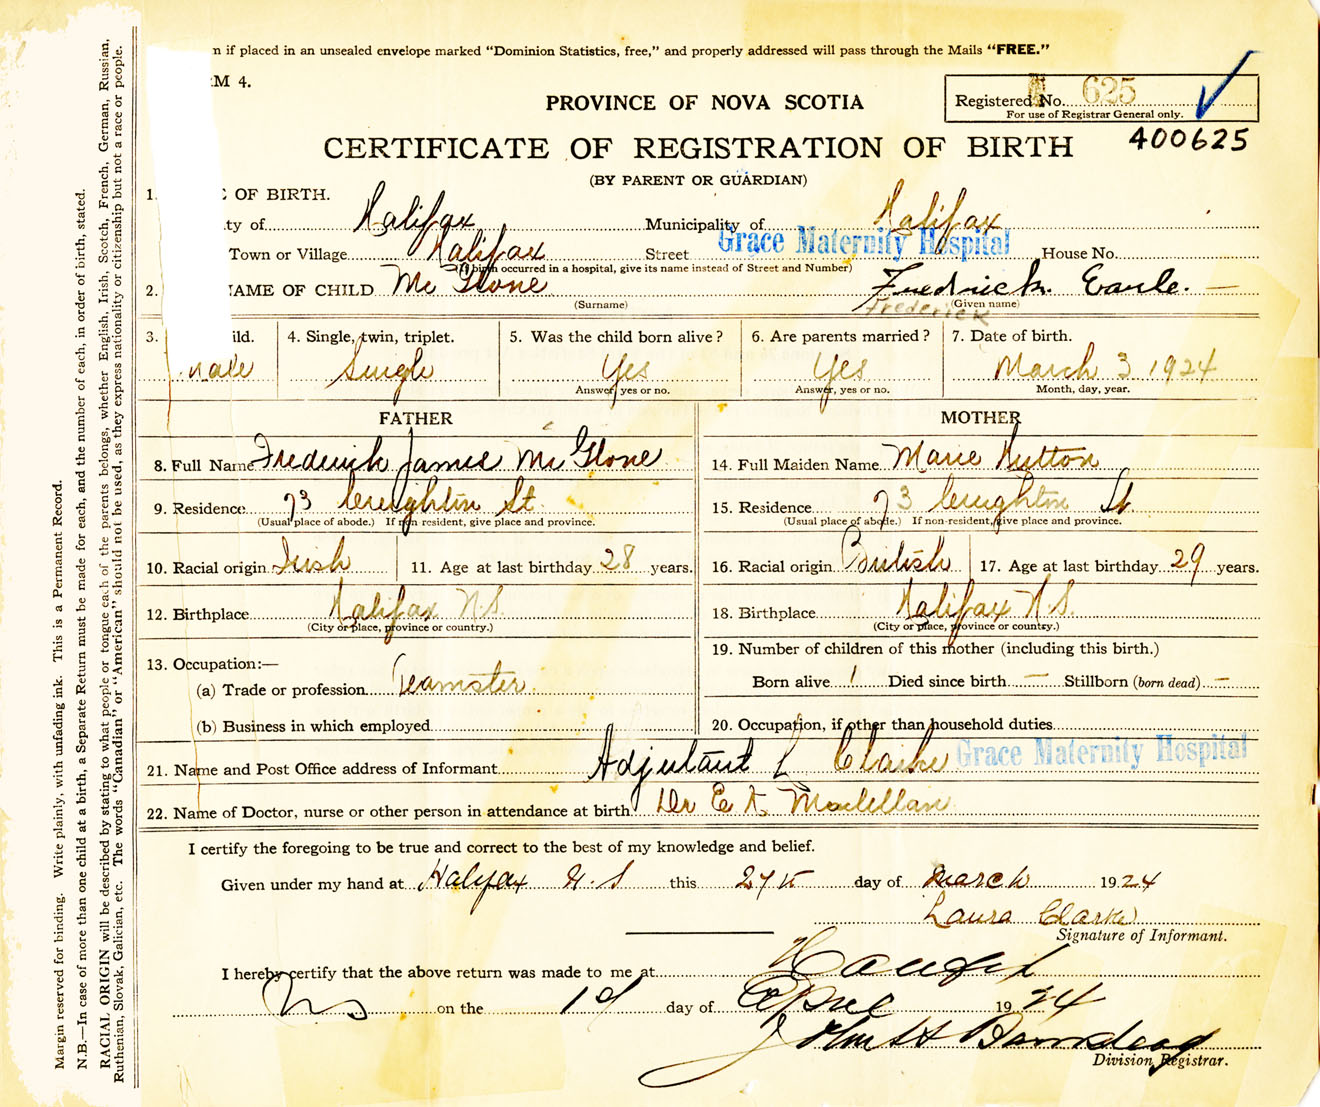 m if placed in an unsealed envelope marked "Dominion Statistics, free," and properly addressed will pass through the Mails "FREE."
RM 4.
PROVINCE OF NOVA SCOTIA
Registered No. 625
For use of Registrar General only.
CERTIFICATE OF REGISTRATION OF BIRTH
400625
(BY PARENT OR GUARDIAN)
1. E OF BIRTH.
ty of Halifax Municipality of Halifax
Town or Village Halifax Street Grace Maternity Hospital House No.
(If birth occurred in a hospital, give its name instead of Street and Number)
2. NAME OF CHILD Mc Glone Fredrick Earle. —
(Surname) (Given name)
Frederick
3. ild. 4. Single, twin, triplet. 5. Was the child born alive? 6. Are parents married? 7. Date of birth.
male Single Yes Yes March 3 1924
Answer, yes or no. Answer, yes or no. Month, day, year.
FATHER MOTHER
8. Full Name Frederick James Mc Glone 14. Full Maiden Name Marie Hutton
9. Residence 73 Creighton St. 15. Residence 73 Creighton St
(Usual place of abode.) If non resident, give place and province. (Usual place of abode.) If non-resident, give place and province.
10. Racial origin Irish 11. Age at last birthday 28 years. 16. Racial origin British 17. Age at last birthday 29 years.
12. Birthplace Halifax N.S. 18. Birthplace Halifax N.S.
(City or place, province or country.) (City or place, province or country.)
19. Number of children of this mother (including this birth.)
13. Occupation:—
(a) Trade or profession Teamster Born alive 1 Died since birth — Stillborn (born dead) —
(b) Business in which employed 20. Occupation, if other than household duties
21. Name and Post Office address of Informant Adjutant L Clarke Grace Maternity Hospital
22. Name of Doctor, nurse or other person in attendance at birth Dr E K Maclellan
I certify the foregoing to be true and correct to the best of my knowledge and belief.
Given under my hand at Halifax N.S this 27th day of March 1924
Laura Clarke
Signature of Informant.
I hereby certify that the above return was made to me at Halifax
N S on the 1st day of April 1924
John H
Division Registrar.
Margin reserved for binding. Write plainly, with unfading ink. This is a Permanent Record.
N.B.—In case of more than one child at a birth, a Separate Return must be made for each, and the number of each, in order of birth, stated.
RACIAL ORIGIN will be described by stating to what people or tongue each of the parents belongs, whether English, Irish, Scotch, French, German, Russian,
Ruthenian, Slovak, Galician, etc. The words "Canadian" or "American" should not be used, as they express nationality or citizenship but not a race or people.